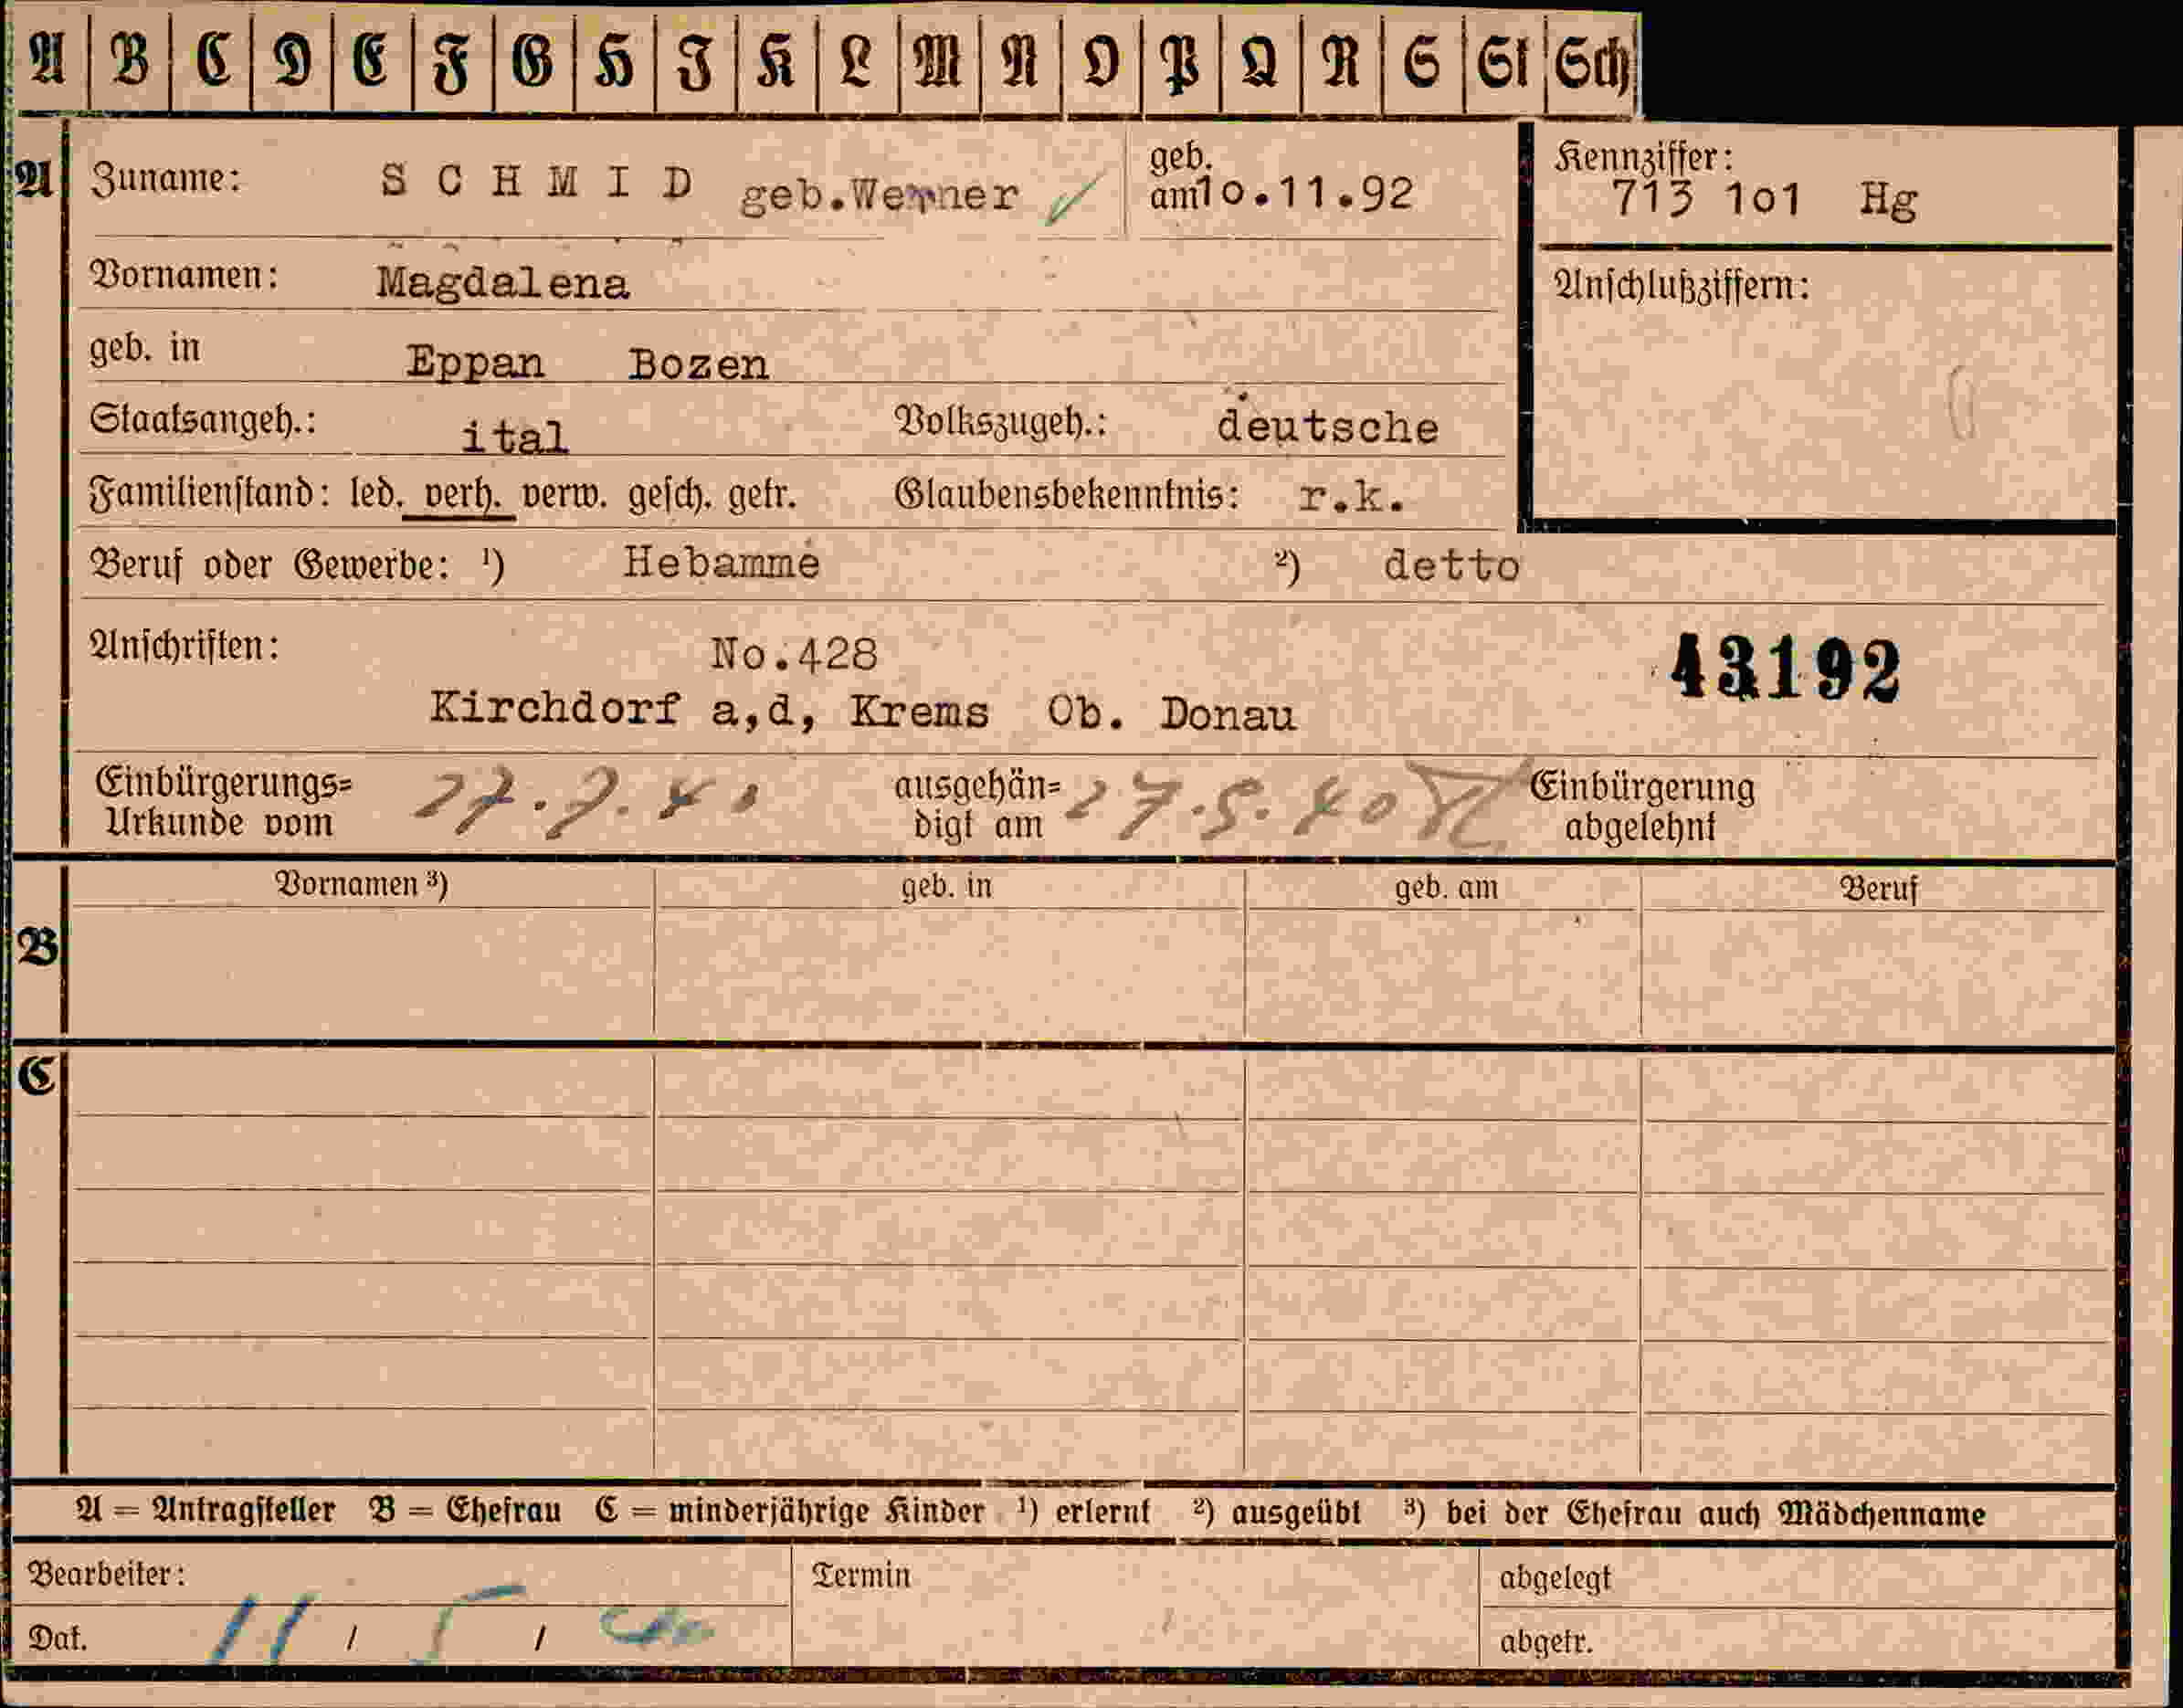 A B C D E F G H I K L M N O P Q R S St Sch
A Zuname: SCHMID geb.Werner geb. am 10.11.92 Kennziffer: 713 101 Hg
Vornamen: Magdalena Anschlußziffern:
geb. in Eppan Bozen
Staatsangeh.: ital Volkszugeh.: deutsche
Familienstand: led. verh. verw. gesch. getr. Glaubensbekenntnis: r.k.
Beruf oder Gewerbe: ¹) Hebamme ²) detto
Anschriften: No.428 43192
Kirchdorf a,d, Krems Ob. Donau
Einbürgerungs= ausgehän= Einbürgerung
Urkunde vom 27. digt am 27.5.40 abgelehnt
Vornamen ³) geb. in geb. am Beruf
B
C
A = Antragsteller B = Ehefrau C = minderjährige Kinder ¹) erlernt ²) ausgeübt ³) bei der Ehefrau auch Mädchenname
Bearbeiter: Termin abgelegt
Dat. 11 / 5 / abgetr.